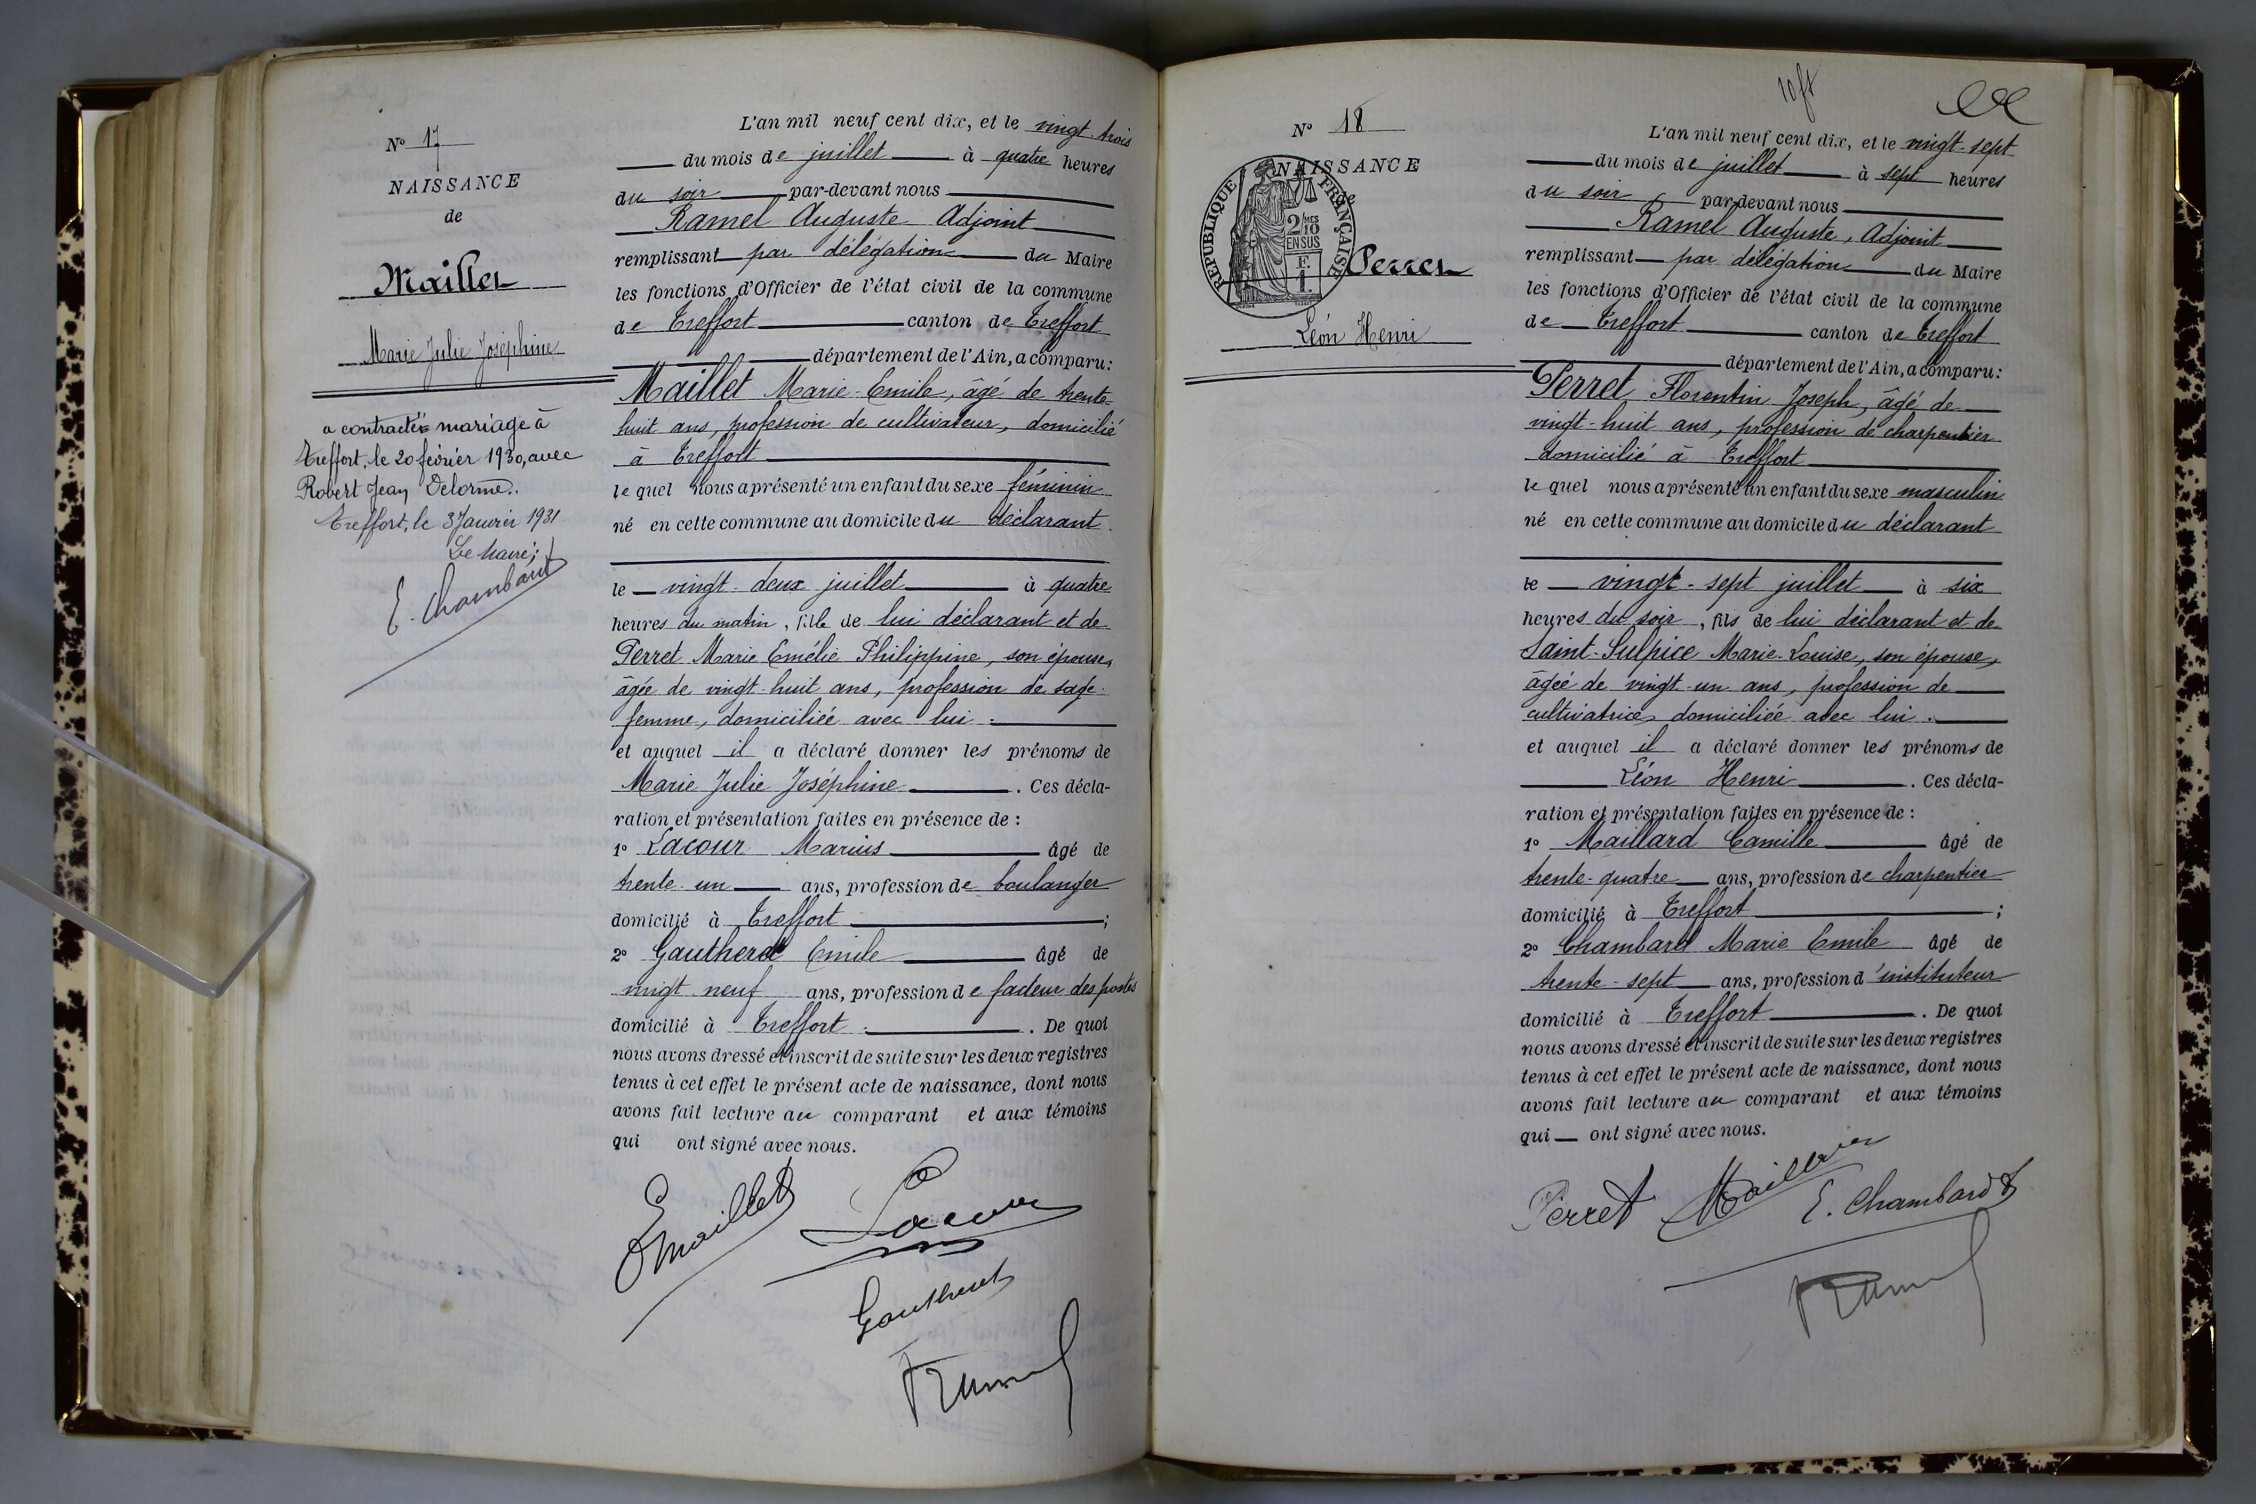 N° 17
NAISSANCE
de
Maillet
Marie Julie Joséphine
a contracté mariage à
Treffort, le 20 février 1930, avec
Robert Jean Delorme.
Treffort, le 3 Janvier 1931
Le Maire;
E. Chambard
L'an mil neuf cent dix, et le vingt-trois
du mois de juillet à quatre heures
du soir par-devant nous
Ramel Auguste Adjoint
remplissant par délégation du Maire
les fonctions d'Officier de l'état civil de la commune
de Treffort canton de Treffort
département de l'Ain, a comparu:
Maillet Marie-Emile, âgé de trente-
huit ans, profession de cultivateur, domicilié
à Treffort
lequel nous a présenté un enfant du sexe féminin
né en cette commune au domicile du déclarant
le vingt-deux juillet à quatre
heures du matin, fille de lui déclarant et de
Perret Marie Emélie Philippine, son épouse,
âgée de vingt-huit ans, profession de sage-
femme, domiciliée avec lui.
et auquel il a déclaré donner les prénoms de
Marie Julie Joséphine . Ces décla-
ration et présentation faites en présence de :
1° Lacour Marius âgé de
trente-un ans, profession de boulanger
domicilié à Treffort ;
2° Gautheret Emile âgé de
vingt neuf ans, profession de facteur des postes
domicilié à Treffort . De quoi
nous avons dressé et inscrit de suite sur les deux registres
tenus à cet effet le présent acte de naissance, dont nous
avons fait lecture au comparant et aux témoins
qui ont signé avec nous.
E Maillet
Lacour
Gautheret
Ramel
10 ft
N° 18
NAISSANCE
de
RÉPUBLIQUE FRANÇAISE
2/10 MES
EN SUS
F.
1.
Perret
Léon Henri
L'an mil neuf cent dix, et le vingt-sept
du mois de juillet à sept heures
du soir par-devant nous
Ramel Auguste, Adjoint
remplissant par délégation du Maire
les fonctions d'Officier de l'état civil de la commune
de Treffort canton de Treffort
département de l'Ain, a comparu:
Perret Florentin Joseph, âgé de
vingt-huit ans, profession de charpentier
domicilié à Treffort
lequel nous a présenté un enfant du sexe masculin
né en cette commune au domicile du déclarant
le vingt-sept juillet à six
heures du soir, fils de lui déclarant et de
Saint-Sulpice Marie-Louise, son épouse,
âgée de vingt-un ans, profession de
cultivatrice, domiciliée avec lui.
et auquel il a déclaré donner les prénoms de
Léon Henri . Ces décla-
ration et présentation faites en présence de :
1° Maillard Camille âgé de
trente-quatre ans, profession de charpentier
domicilié à Treffort ;
2° Chambard Marie Emile âgé de
trente-sept ans, profession d'instituteur
domicilié à Treffort . De quoi
nous avons dressé et inscrit de suite sur les deux registres
tenus à cet effet le présent acte de naissance, dont nous
avons fait lecture au comparant et aux témoins
qui ont signé avec nous.
Perret Maillard
E. Chambard
Ramel